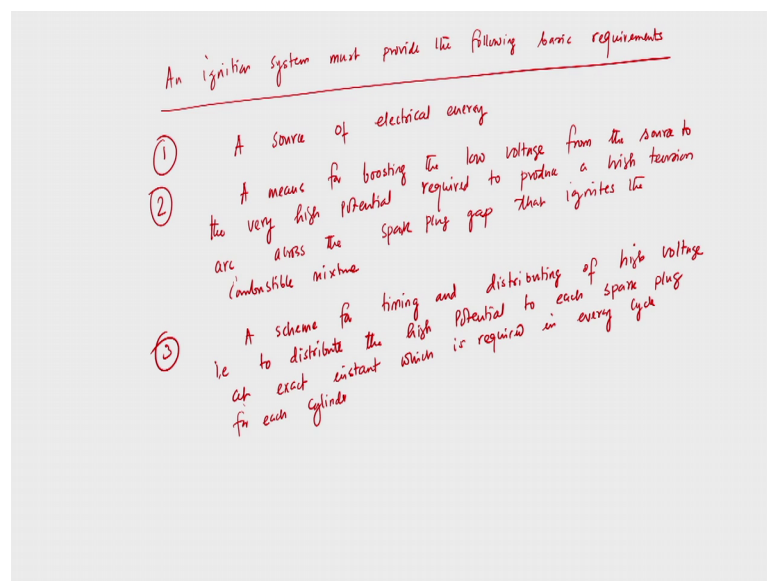 An ignition system must provide the following basic requirements
① A source of electrical energy
② A means for boosting the low voltage from the source to
the very high potential required to produce a high tension
arc across the spark plug gap that ignites the
combustible mixture
③ A scheme for timing and distributing of high voltage
i.e to distribute the high potential to each spark plug
at exact instant which is required in every cycle
for each cylinder